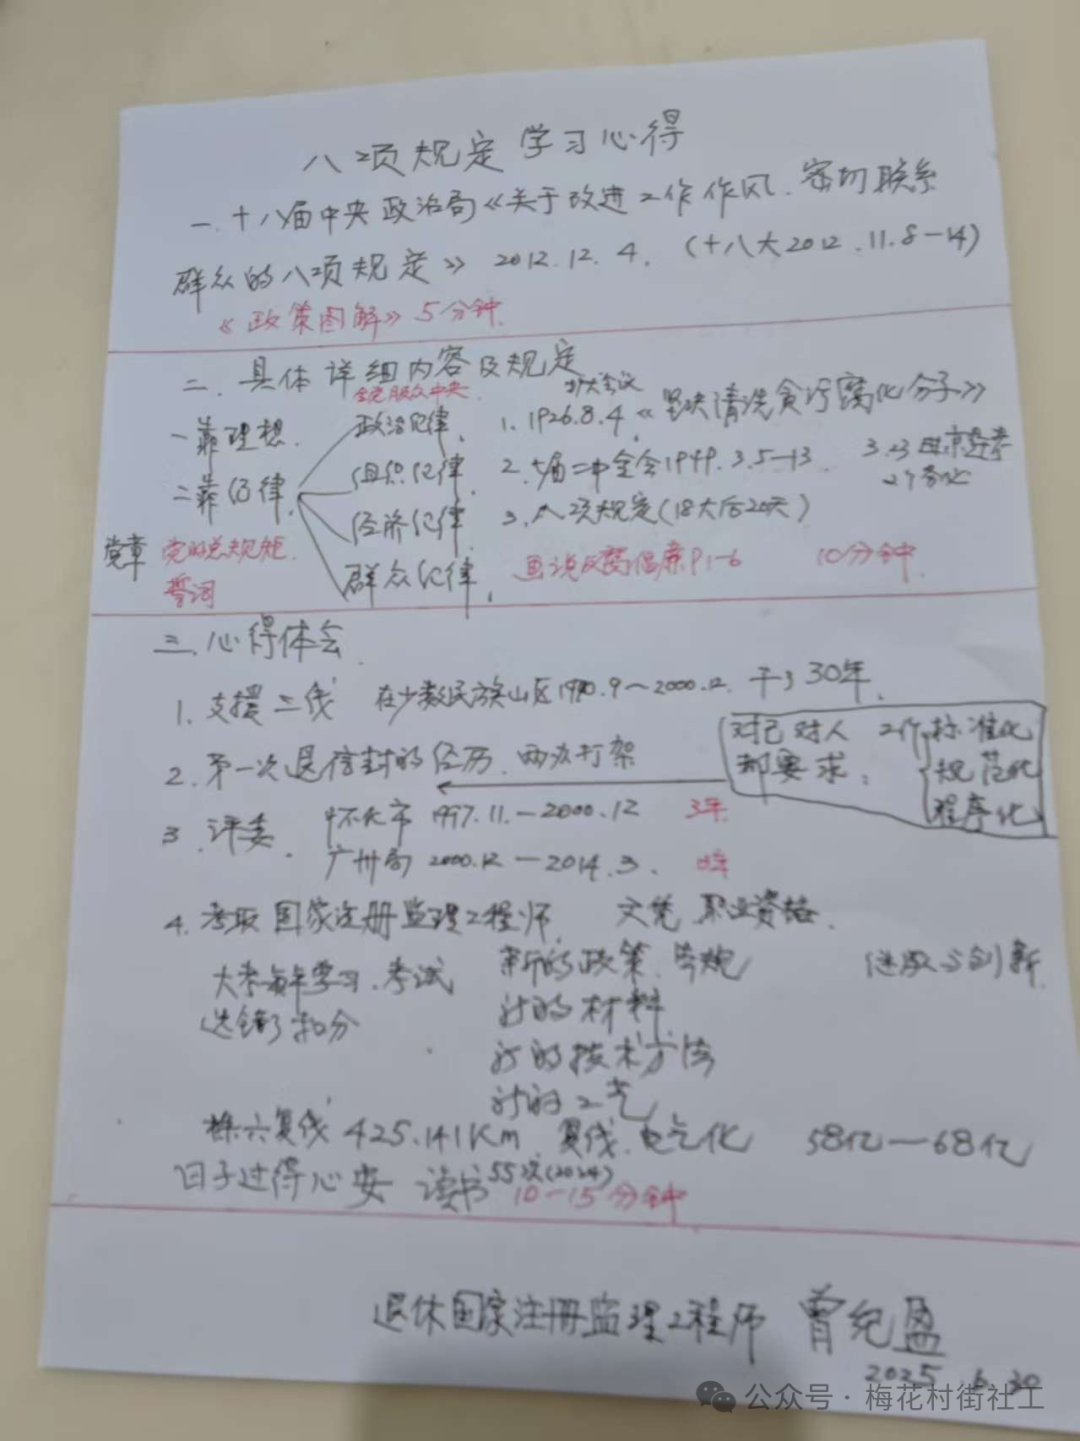 八项规定学习心得
一.十八届中央政治局《关于改进工作作风、密切联系
群众的八项规定》 2012.12.4. (十八大2012.11.8—14)
《政策图解》5分钟.
二.具体详细内容及规定
全党服从中央.
扩大会议
一靠理想. 政治纪律, 1. 1926.8.4《坚决清洗贪污腐化分子》
二靠纪律, 组织纪律, 2. 七届二中全会1949.3.5—13 3.23
2个务必
经济纪律. 3. 八项规定(18大后20天)
党章 党的总规矩. 群众纪律, 画说反腐倡廉P1-6 10分钟.
誓词
三.心得体会.
1. 支援三线 在少数民族山区1970.9~2000.12. 干了30年.
对己对人 2个 标准化
都要求: 规范化
程序化
2. 第一次退信封的经历. 两次打架
3. 评委. 怀化市 1997.11.—2000.12 3年
广州局 2000.12—2014.3.
4. 考取国家注册监理工程师. 文凭 职业资格.
大考每年学习.考试 新的政策. (进取与创新.
选错了扣分 新的材料
新的技术方法
新的工艺
株六复线 425.141Km. 复线.电气化 58亿—68亿
日子过得心安 读书55次(2024) 10—15分钟
退休国家注册监理工程师 曾纪盈
2025.6.30
公众号·梅花村街社工